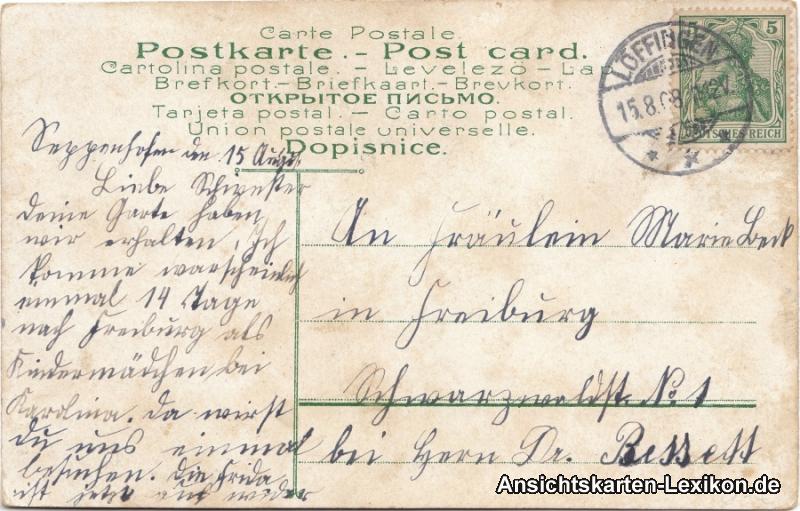 Carte Postale.
Postkarte. - Post card.
Cartolina postale. - Levelező - La
Brefkort. - Briefkaart. - Brevkort.
ОТКРЫТОЕ ПИСЬМО.
Tarjeta postal. - Carto postal.
Union postale universelle.
Dopisnice.
LÖFFINGEN
15.8.08
5
DEUTSCHES REICH
Seppenhofen den 15 Augs.
Liebe Schwester
deine Garte haben
wir erhalten. Ich
komme warscheinlich
einmal 14 Tage
nach Freiburg als
Kindermädchen bei
Karolina. Da wirst
du uns einmal
besuchen. Die Frida
ist jetzt auf wieder
An Fräulein Marie Beck
in Freiburg
Schwarzwaldst. No. 1
bei Herrn Dr. Bessett
Ansichtskarten-Lexikon.de